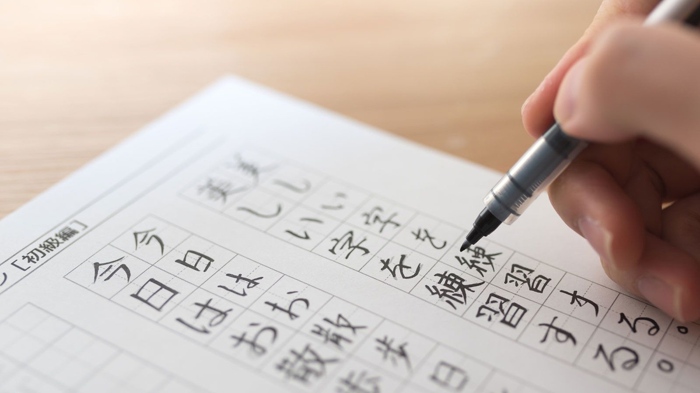 [初級編]
美しい字を練習する。
美しい字を練習する。
今日はお散歩日
今日はお散歩